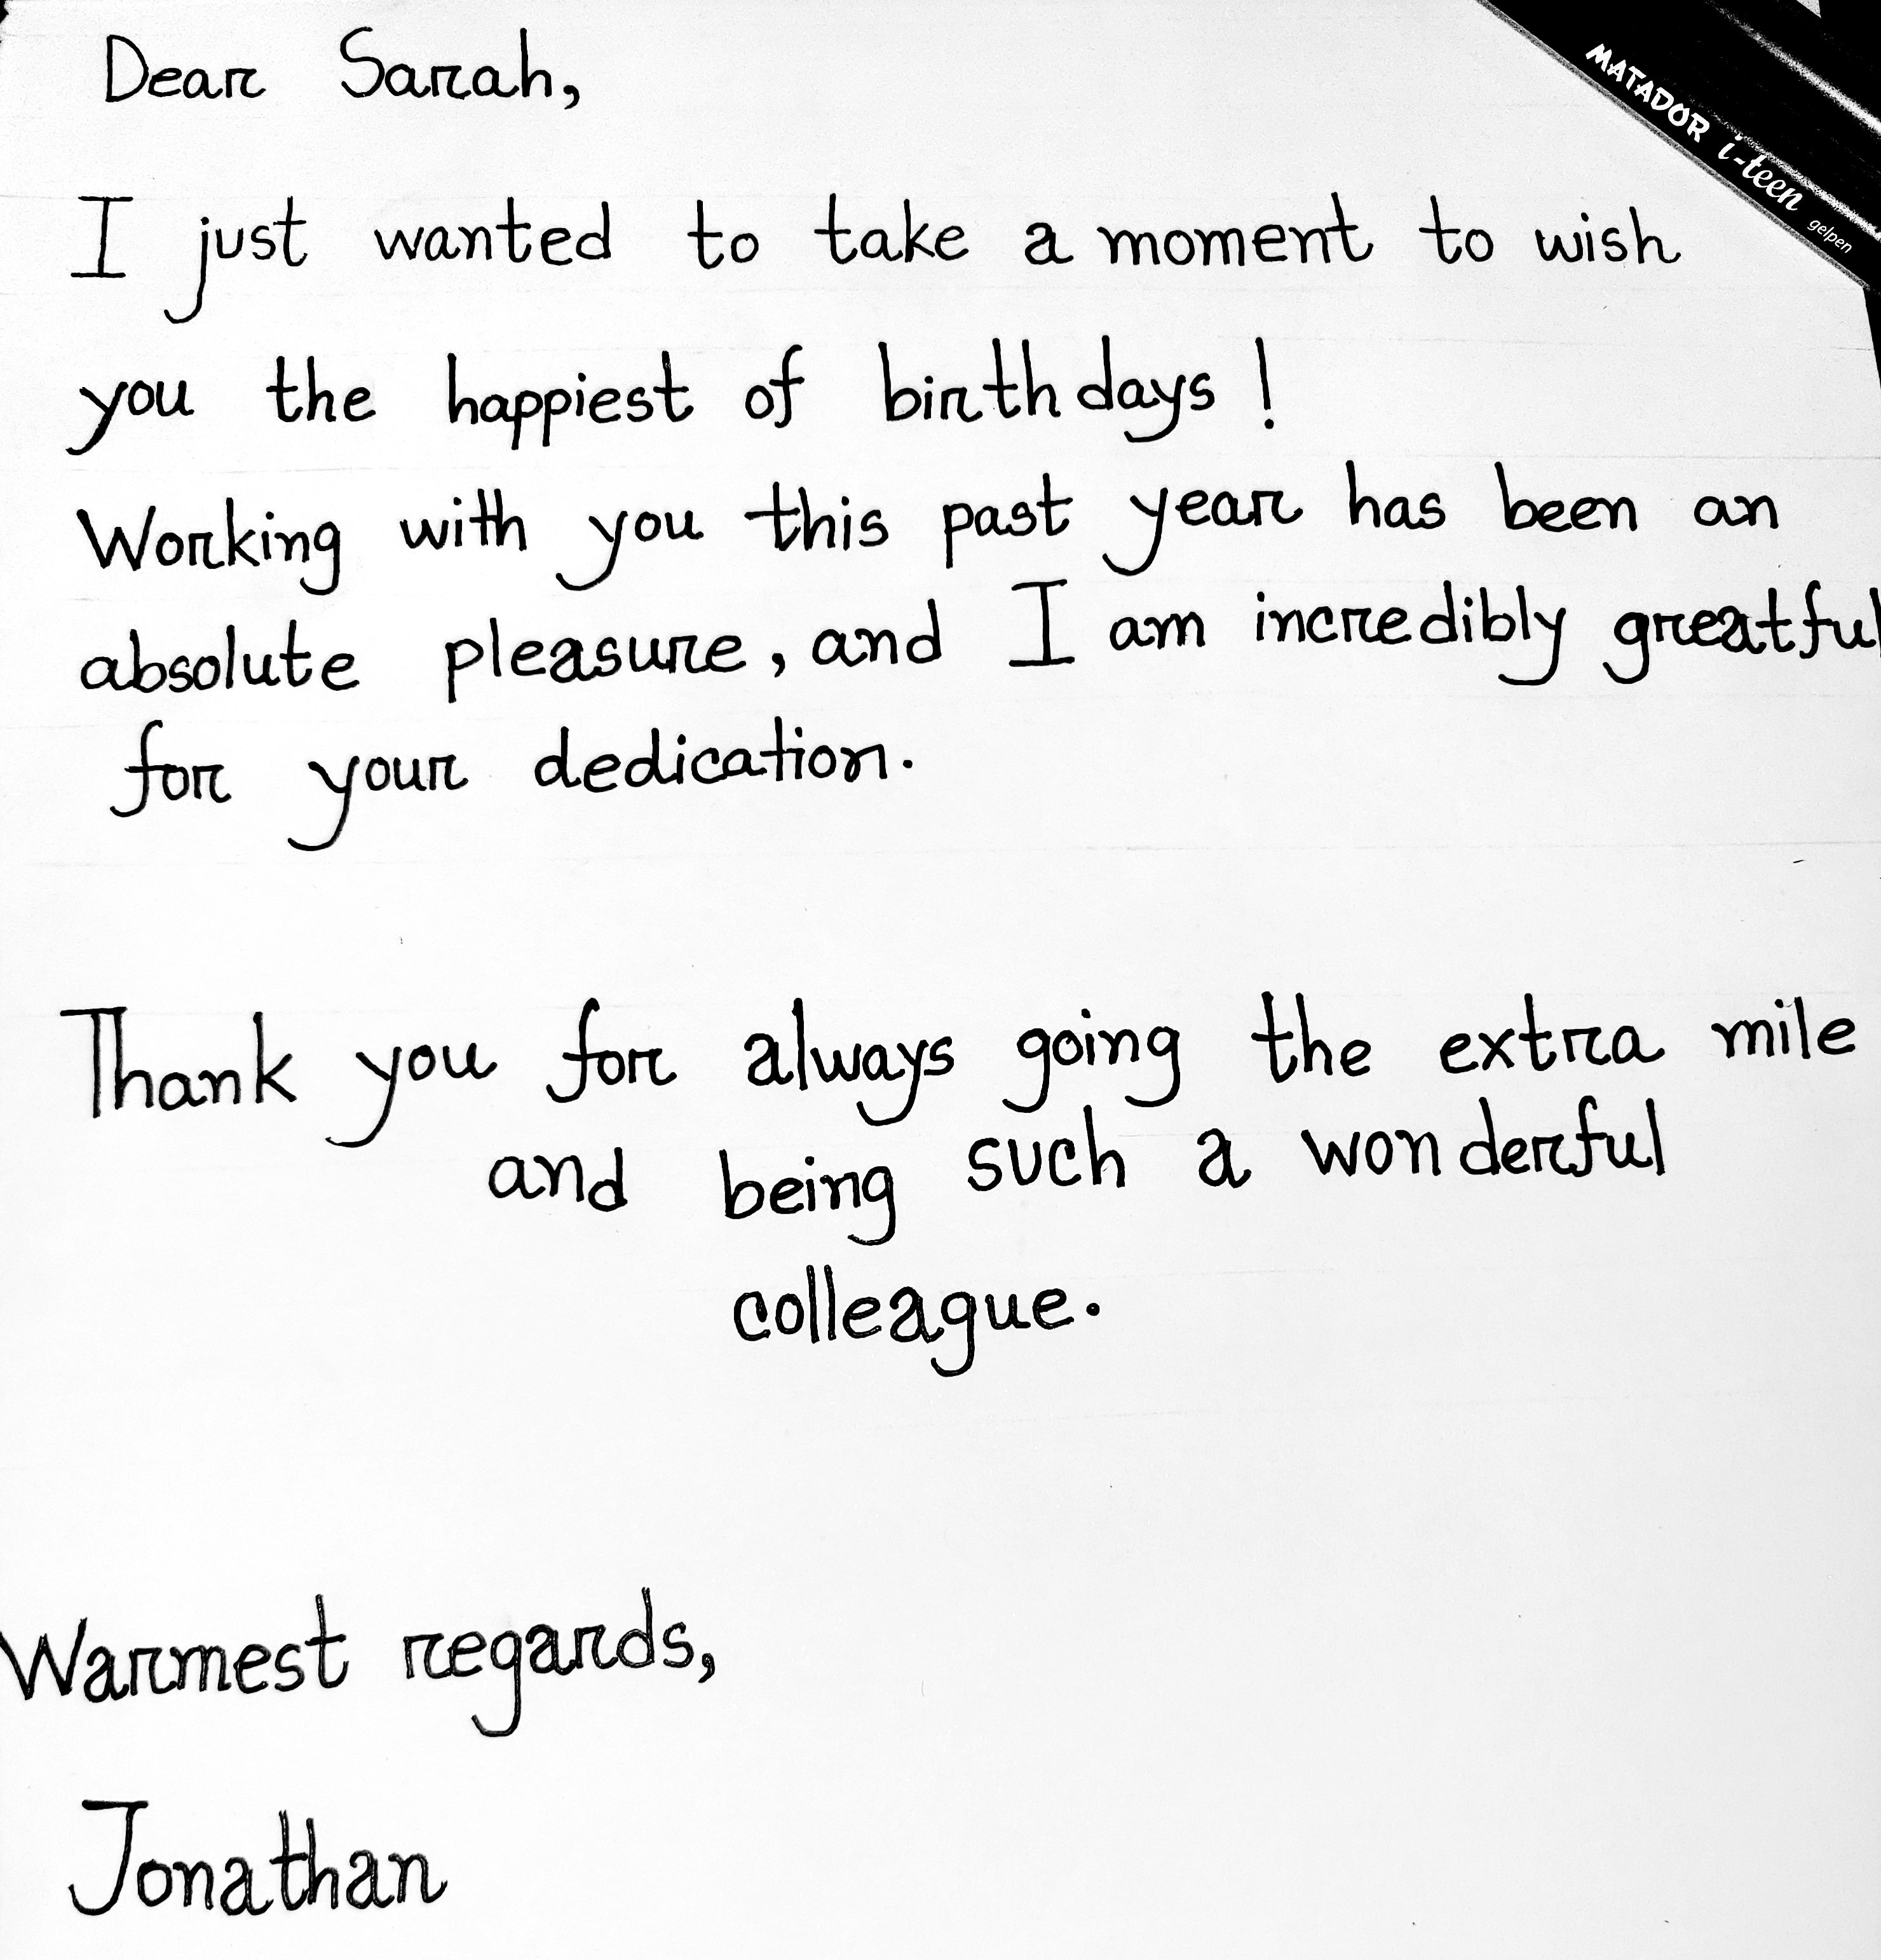 Dear Sarah,
MATADOR i-teen gelpen
I just wanted to take a moment to wish
you the happiest of birthdays!
Working with you this past year has been an
absolute pleasure, and I am incredibly greatful
for your dedication.
Thank you for always going the extra mile
and being such a wonderful
colleague.
Warmest regards,
Jonathan